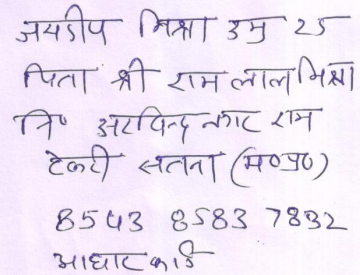 जयदीप मिश्रा उम्र 25
पिता श्री राम लाल मिश्रा
नि० अरविन्द नगर राम
टेकरी सतना (म०प्र०)
8543 8583 7832
आधार कार्ड